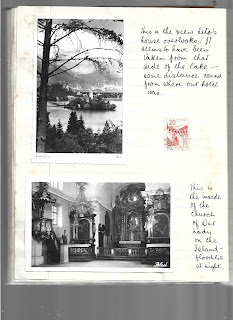 This is the view Lito's
house overlooks. It
seems to have been
taken from that
side of the lake –
some distance round
from where our hotel
was.
20
This is
the inside
of the
church
of Our
Lady
on the
Island –
floodlit
at night.
Bled